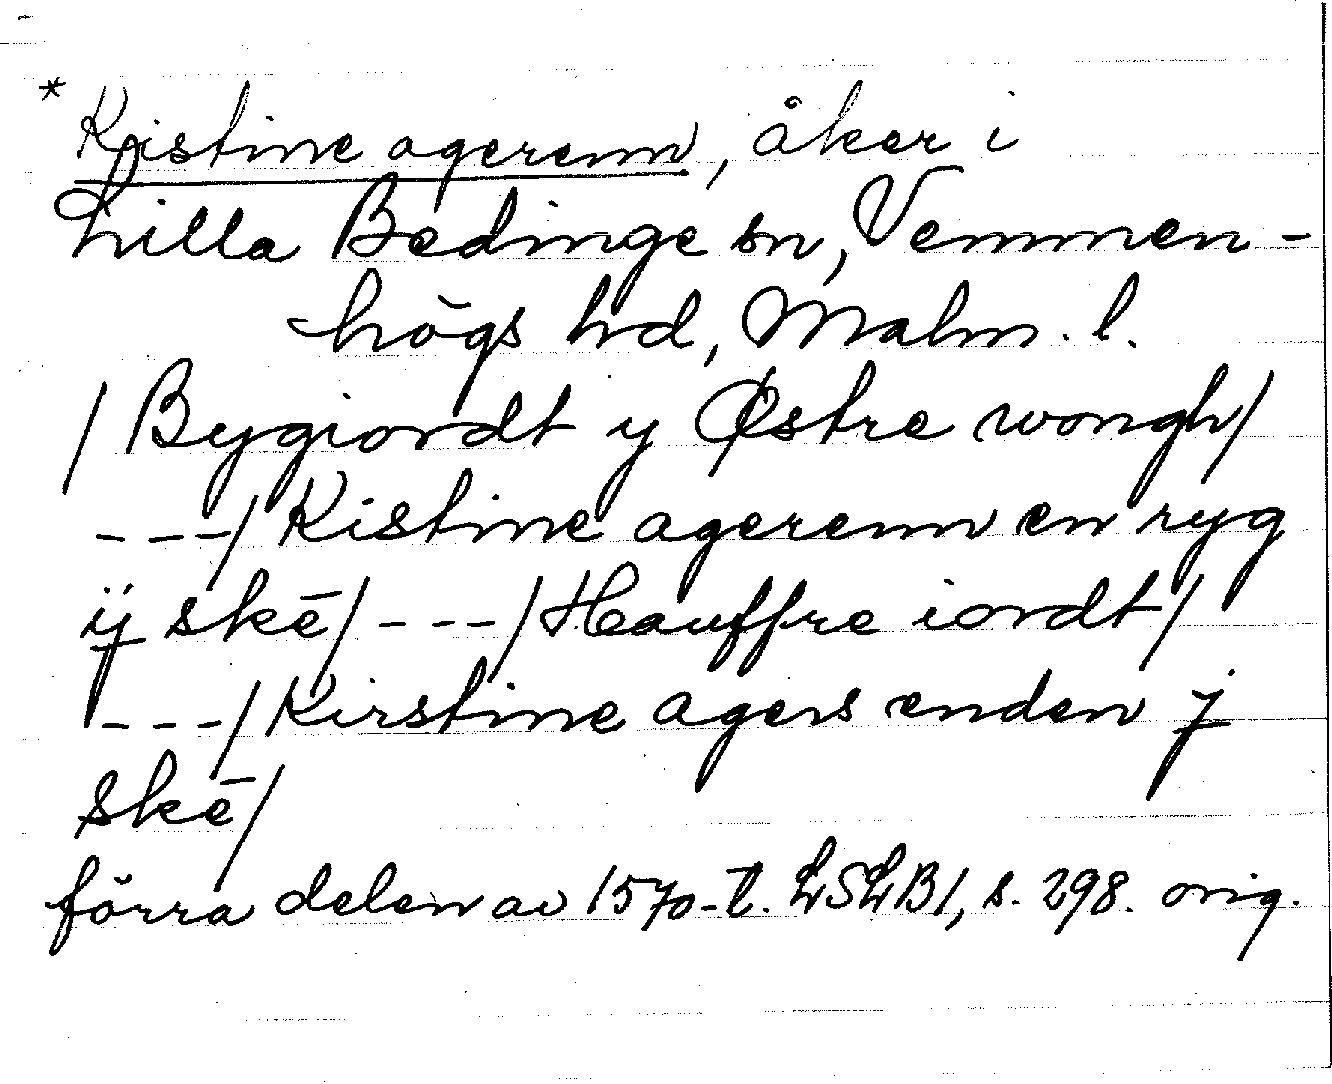 * Kristine agerenn, åker i
Lilla Bedinge sn, Vemmen-
högs hd, Malm. l.
/ Bygiordt y Østre wongh/
---/ Kistine agerenn en ryg
ÿ skē/ ---/ Hauffre iordt/
---/ Kirstine agers enden j
skē/
förra delen av 1570-t. LSLB1, s. 298. orig.